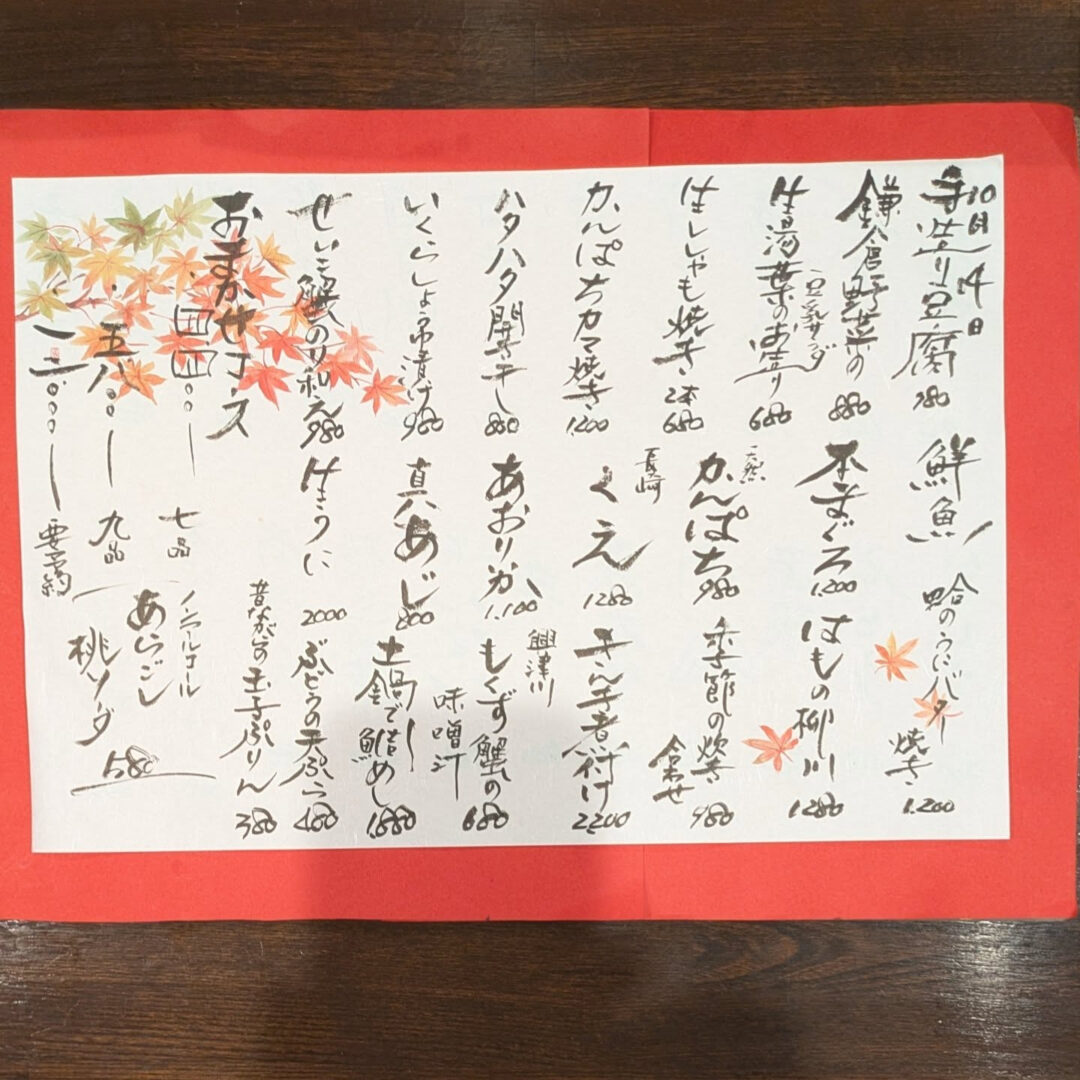 10月14日
手造り豆腐 780
鎌倉野菜の
豆乳サラダ 880
生湯葉のお造り 680
生ししゃも焼き 2本 680
かんぱちカマ焼き 1.200
ハタハタ開き干し 800
いくらしょう油漬け 980
せいこ蟹のサラダ和え 980
おまかせコース
四四〇〇ー 七品
五八〇〇ー 九品
一二〇〇〇ー 要予約
鮮魚
本まぐろ 1.200
天然
かんぱち 980
長崎
くえ 1280
あおりいか 1.100
真あじ 800
生うに 2000
蛤のうにバター
焼き 1.200
はもの柳川 1280
季節の炊き
合わせ 980
きんき煮付け 2.200
興津川
もくず蟹の
味噌汁 680
土鍋で
鯛めし 1.880
ぶどうの天ぷら 480
昔ながらの玉子ぷりん 380
ノンアルコール
あらごし
桃ソーダ 580